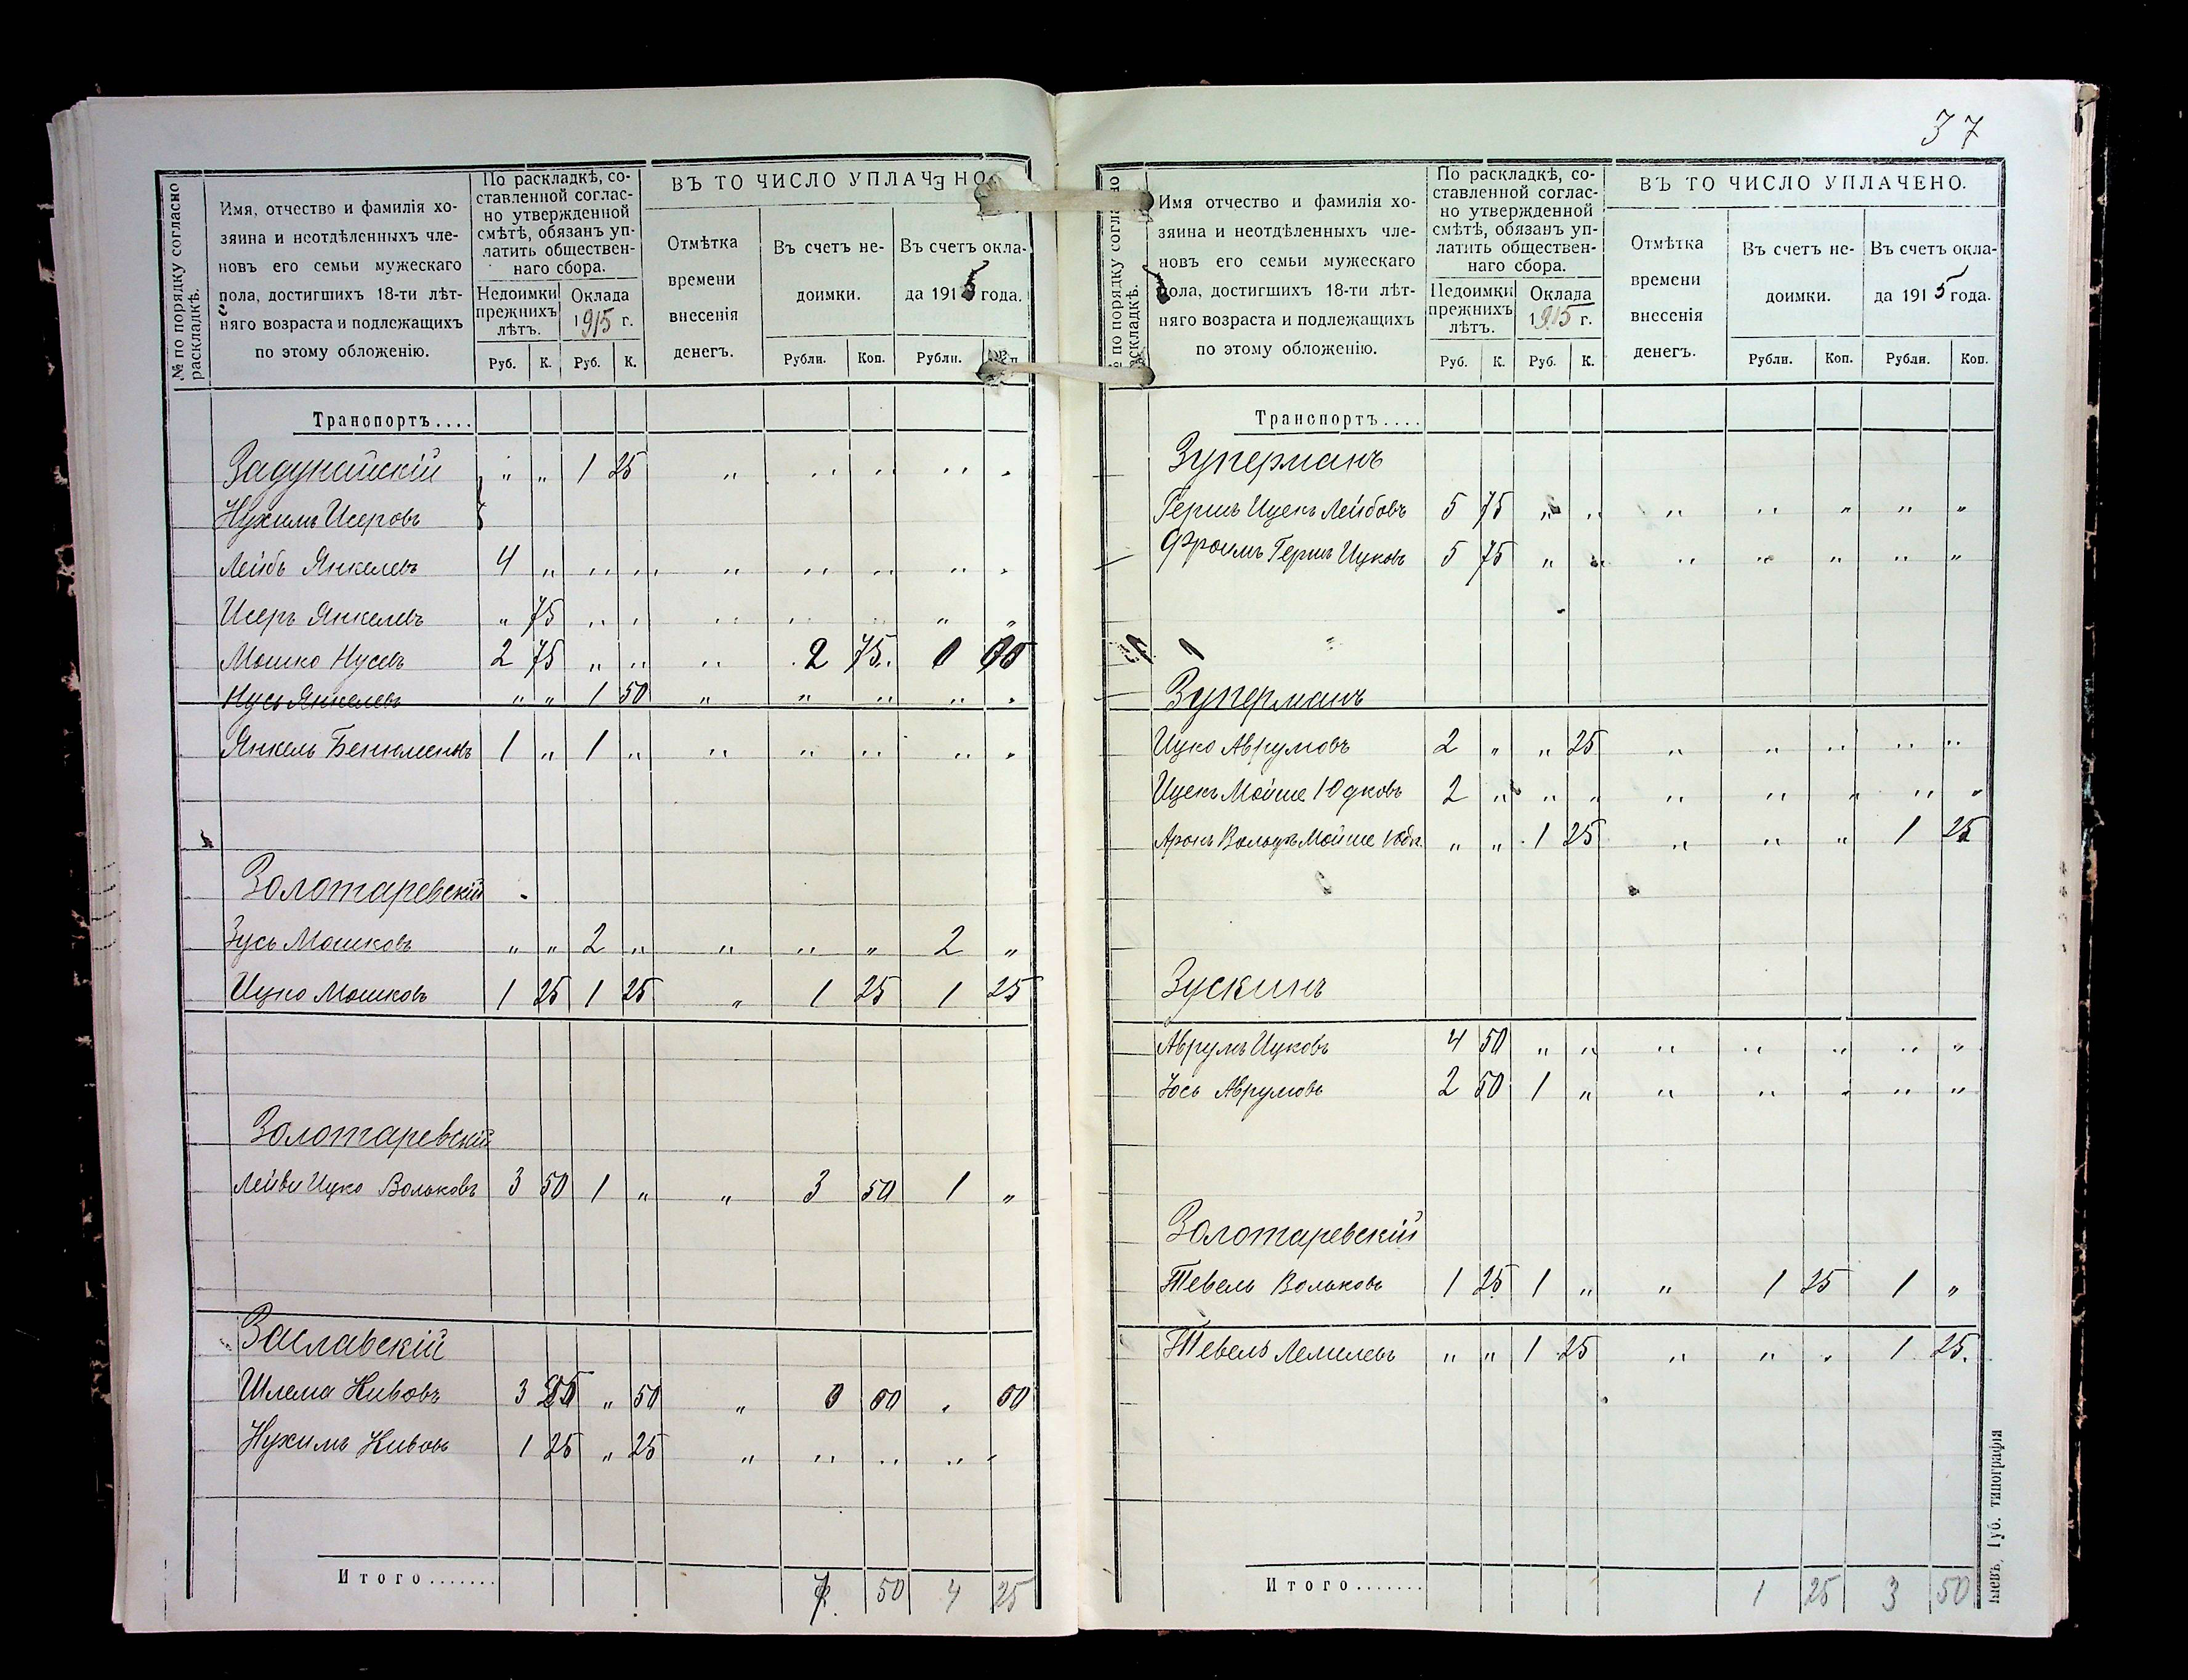 № по порядку согласно раскладкѣ.
Имя, отчество и фамилія хо-
зяина и неотдѣленныхъ чле-
новъ его семьи мужескаго
пола, достигшихъ 18-ти лѣт-
няго возраста и подлежащихъ
по этому обложенію.
По раскладкѣ, со-
ставленной соглас-
но утвержденной
смѣтѣ, обязанъ уп-
латить обществен-
наго сбора.
Недоимки прежнихъ лѣтъ.
Оклада 1915 г.
Руб. К. Руб. К.
ВЪ ТО ЧИСЛО УПЛАЧЕНО
Отмѣтка
времени
внесенія
денегъ.
Въ счетъ не-
доимки.
Въ счетъ окла-
да 1915 года.
Рубли. Коп. Рубли.
Транспортъ....
Задунайскій " " 1 25 " " " " "
Нухимъ Исеровъ
Лейбъ Янкелевъ 4 " " " " " " " "
Исеръ Янкелевъ " 75 " " " " " " "
Мошко Нусевъ 2 75 " " " 2 75
Нусь Янкелевъ " " 1 50 " " " " "
Янкель Бенюменовъ 1 " 1 " " " " " "
Золотаревскій
Зусь Мошковъ " " 2 " " " " 2 "
Ицко Мошковъ 1 25 1 25 " 1 25 1 25
Золотаревскій
Лейви Ицко Вольковъ 3 50 1 " " 3 50 1 "
Заславскій
Шлема Кивовъ 3 " 50 "
Нухимъ Кивовъ 1 25 " 25 " " " " "
Итого....... 7 50 4 25
37
Имя отчество и фамилія хо-
зяина и неотдѣленныхъ чле-
новъ его семьи мужескаго
пола, достигшихъ 18-ти лѣт-
няго возраста и подлежащихъ
по этому обложенію.
По раскладкѣ, со-
ставленной соглас-
но утвержденной
смѣтѣ, обязанъ уп-
латить обществен-
наго сбора.
Недоимки прежнихъ лѣтъ.
Оклада 1915 г.
Руб. К. Руб. К.
ВЪ ТО ЧИСЛО УПЛАЧЕНО.
Отмѣтка
времени
внесенія
денегъ.
Въ счетъ не-
доимки.
Въ счетъ окла-
да 1915 года.
Рубли. Коп. Рубли. Коп.
Транспортъ....
Зуперманъ
Гершъ Ицекъ Лейбовъ 5 75 " " " " " " "
Фроимъ Гершъ Ицковъ 5 75 " " " " " " "
Зуперманъ
Ицко Аврумовъ 2 " " 25 " " " " "
Ицекъ Мойше Юдковъ 2 " " " " " " " "
Аронъ Вольфъ Мойше " " 1 25 " " " 1 25
Зускинъ
Аврумъ Ицковъ 4 50 " " " " " " "
Юсь Аврумовъ 2 50 1 " " " " " "
Золотаревскій
Тевель Вольковъ 1 25 1 " " 1 25 1 "
Тевель Лемелевъ " " 1 25 " " " 1 25.
Итого....... 1 25 3 50
Губ. типографія